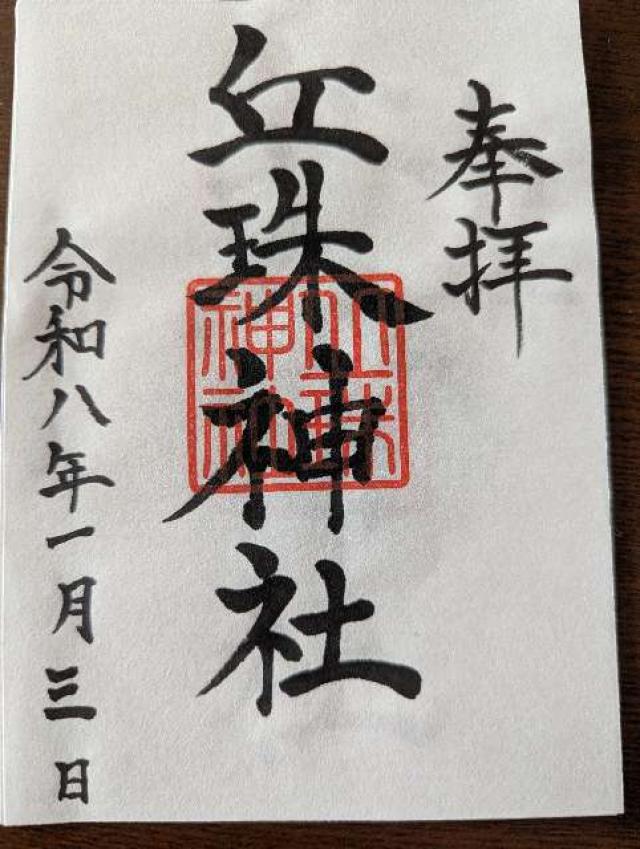 奉拝
丘珠神社
丘珠
神社
令和八年一月三日